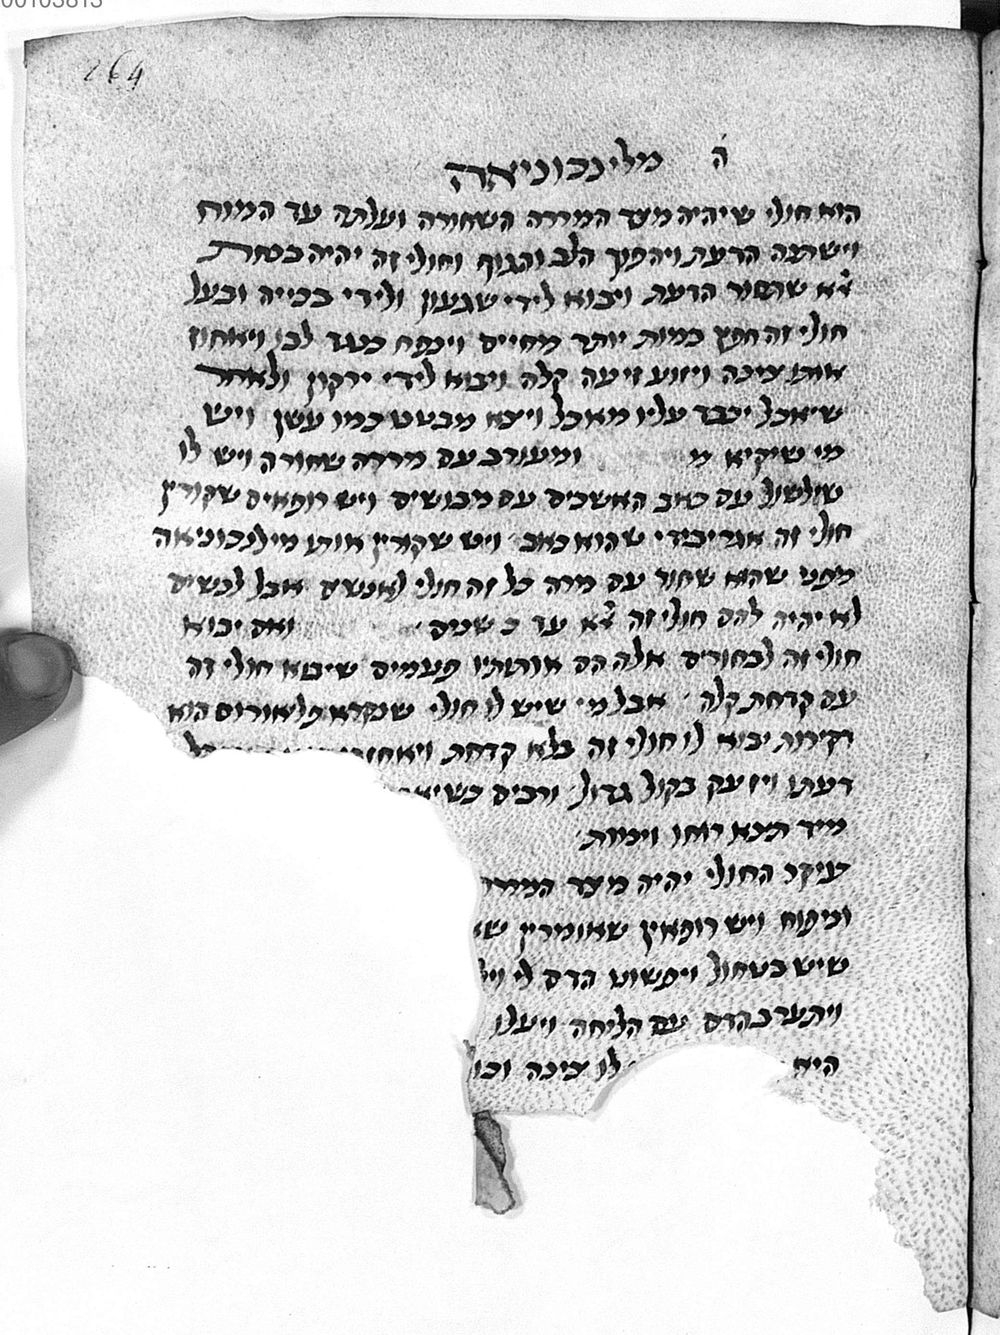 00105813
264
ה מלינכוניאה
הוא חולי שיהיה מצד המררה השחורה ועלתה עד המוח
וישתנה הדעת ויהפוך הלב והגוף וחולי זה יהיה
שתסור הדעת ויבוא לידי שגעון ולידי בכייה ובעל
חולי זה חפץ במות יותר מחיים וינפח כנגד לבו ויאחוז
אותו צינה ויזוע זיעה קלה ויבוא לידי ירקון ולאחר
שיאכל יכבד עליו מאכל ויצא מבטט כמו עשן ויש
מי שיקיא מ ומעורב עם מררה שחורה ויש לו
שילשול עם כאב האשכים עם מבושים ויש רופאים שקורין
חולי זה שהוא כאב ויש שקורין אותו מילנכוניאה
מפני שהוא שחור עם מרה כל זה חולי לאנשים אבל לנשים
לא יהיה להם חולי זה עד כ שנים ואם יבוא
חולי זה לבחורים אלה הם אותותיו פעמים שיבוא חולי זה
עם קדחת קלה אבל מי שיש לו חולי שנקרא פליאורוס הוא
דקירות יבוא לו חולי זה בלא קדחת
דעתו ויזעק בקול גדול ורבים
מיד תצא רוחו וימות
כעיקר החולי יהיה מצד המררה
ומפוח ויש רופאין שאומרין
שיש בטחול ויפשוט הדם
ויתערב הדם עם הליחה ויעלו
היא לו צינה